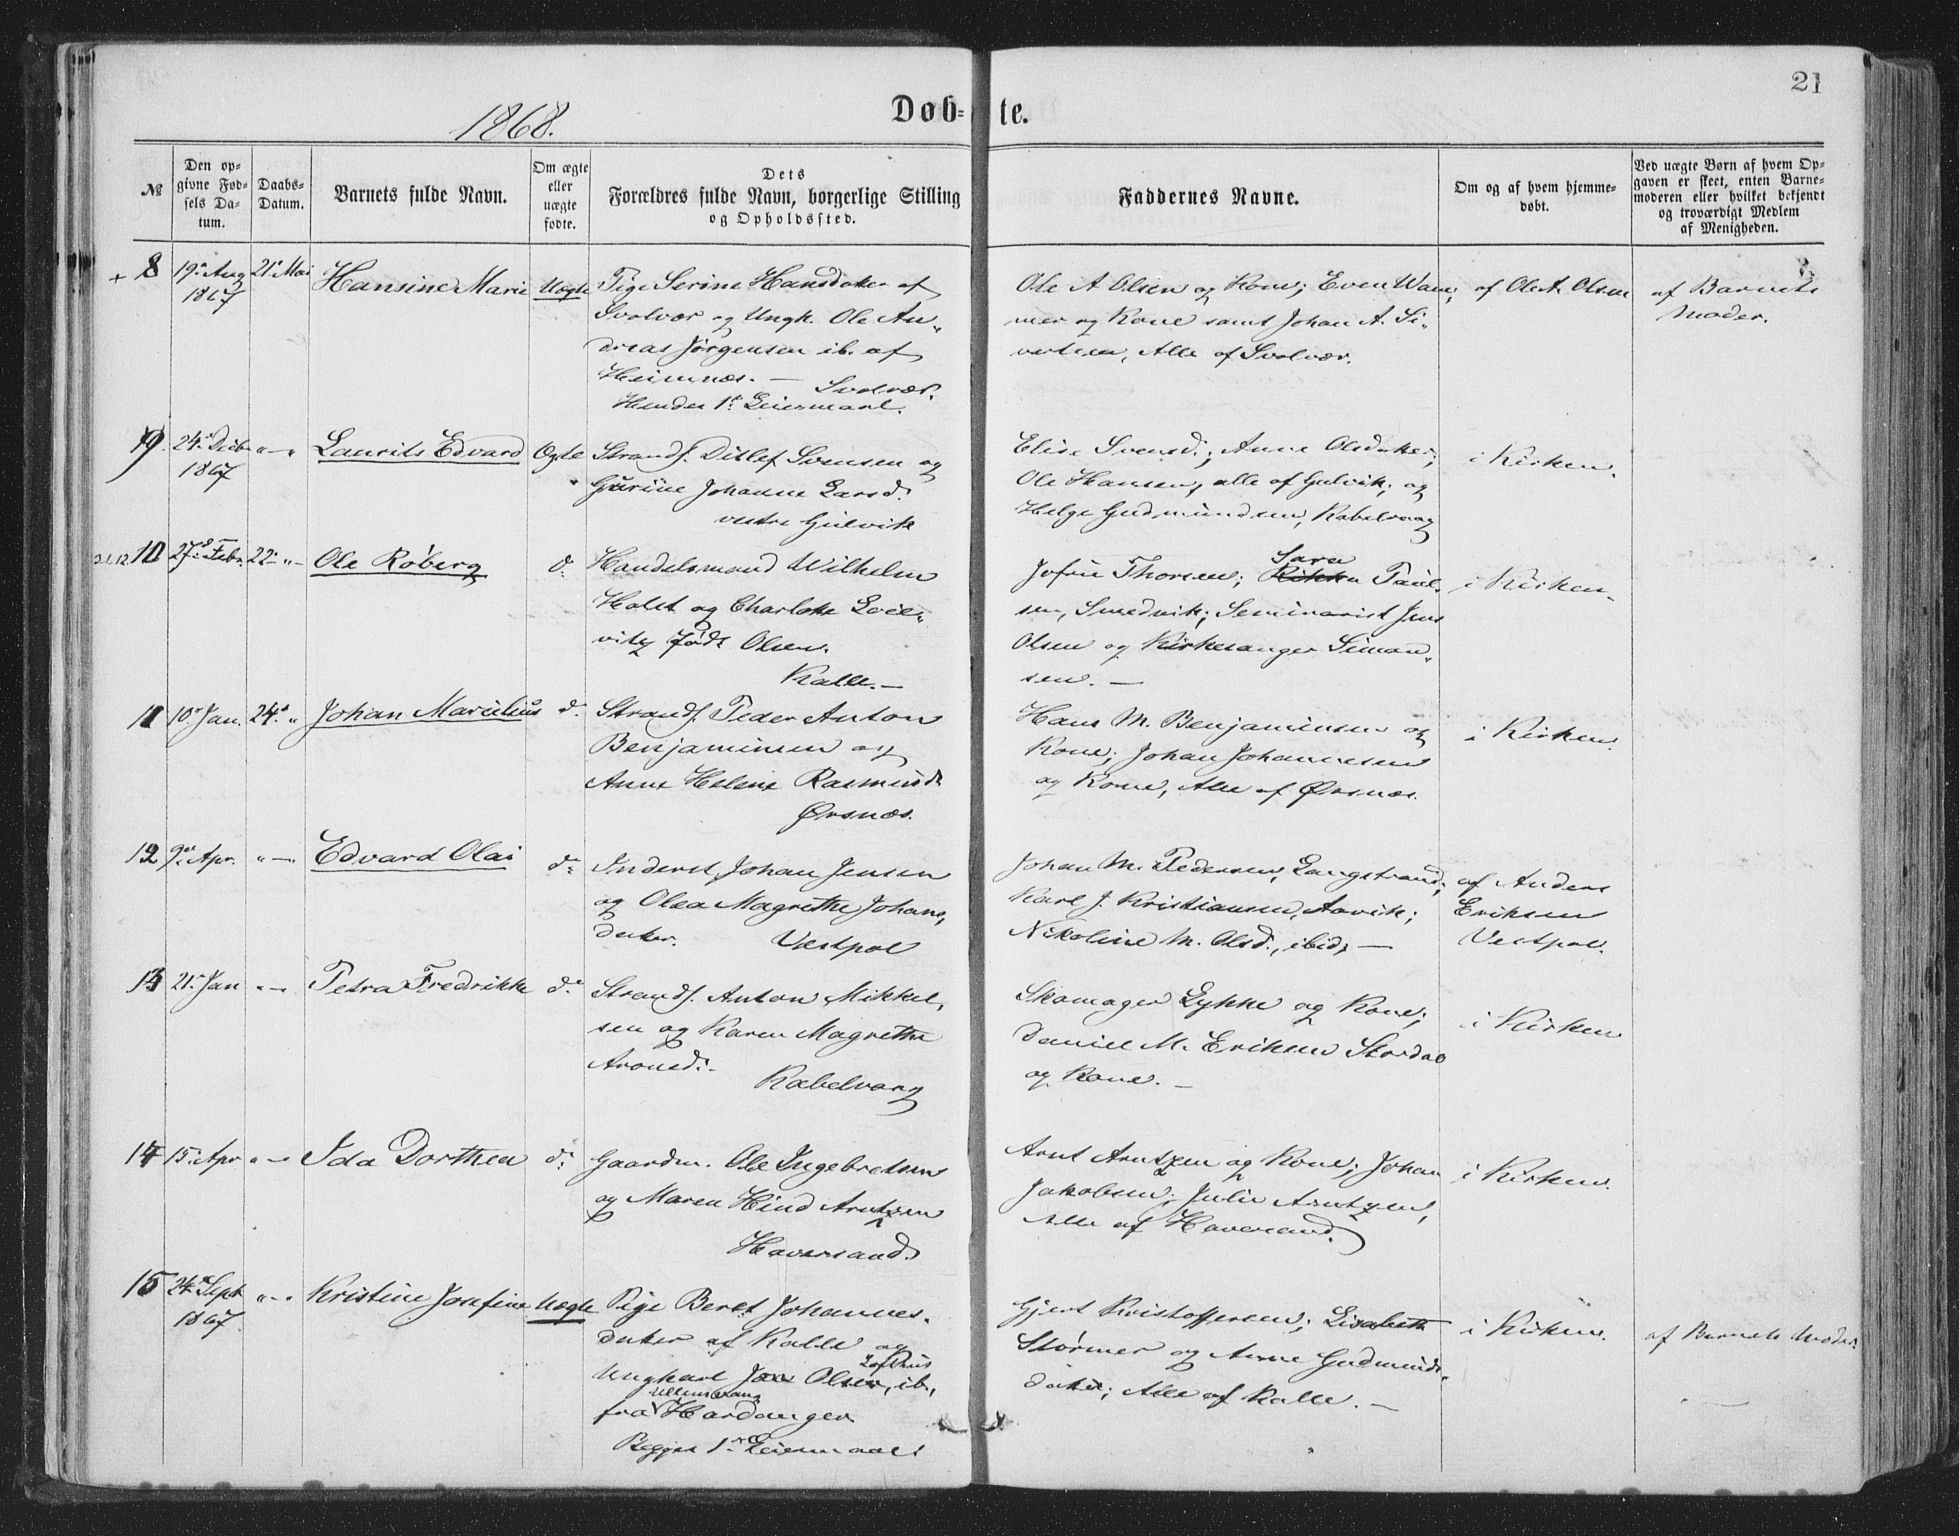 21
1868.
Døb-te.
№
Den op-
givne Fød-
sels Da-
tum.
Daabs-
Datum.
Barnets fulde Navn.
Om ægte
eller
uægte
fødte.
Dets
Forældres fulde Navn, borgerlige Stilling
og Opholdssted.
Faddernes Navne.
Om og af hvem hjemme-
døbt.
Ved uægte Børn af hvem Op-
gaven er skeet, enten Barne-
moderen eller hvilket bekjendt
og troværdigt Medlem
af Menigheden.
+ 8
19de Aug
1867
21de Mai
Hansine Marie
Uægte
Pige Serine Hansdatter af
Svolvær og Ungk. Ole An-
dreas Jørgensen ib. af
Heimnæs. —
Svolvær.
Hendes 1ste Leiermaal.
Ole A Olsen og Kone; Even Wam-
mer og Kone samt Johan A. Si-
vertsen, Alle af Svolvær.
af Ole A. Olsen
af Barnets
Moder.
9.
24de Decbr
1867
"—"
Laurits Edvard
Ægte
Strands. Ditlef Svensen og
Gurine Johanne Larsd.
vestre Gulvik
Elise Svensd.; Anne Olsdatter;
Ole Hansen, alle af Gulvik; og
Helge Gudmundsen, Kabelvaag
i Kirken.
10
27de Febr.
22— "—
Ole Røberg
do
Handelsmand Wilhelm
Holst og Charlotte Lovi-
vitz født Olsen.
Kalle. —
Jofrie Thorsen; Sara Paul-
sen, Smedvik; Seminarist Jens
Olsen og Kirkesanger Simon-
sen. —
i Kirken.
11
10de Jan.
24de "
Johan Marcelius
do
Strands. Peder Anton
Benjaminsen og
Anne Helene Rasmusd.
Ørsnæs.
Hans M. Benjaminsen og
Kone; Johan Johannesen
og Kone, Alle af Ørsnæs.
i Kirken.
12
9de Apr.
"—
Edvard Olai
do
Inderst Johan Jensen
og Olea Magrethe Johans-
datter.
Vestpol
Johan M. Pedersen, Langstrand;
Karl J. Kristiansen, Aavik;
Nikoline M. Olsd., ibid, —
af Anders
Eriksen
Vestpol.
13
21de Jan
"—
Petra Fredrikke
do
Strands. Anton Mikkel-
sen og Karen Magrethe
Aronsd. —
Kabelvaag
Skomager Lykke og Kone;
Daniel M. Eriksen Stordal
og Kone. —
i Kirken
14
15de Apr
"—
Ida Dorthea
do
Gaardm. Ole Ingebretsen
og Maren Hind Arntzen
Haversand.
Arnt Arntzen og Kone; Johan
Jakobsen; Julie Arntzen,
Alle af Haversand.
i Kirken.
15
24de Sept
1867
"—"
Kristine Josefine
Uægte
Pige Beret Johannes-
datter af Kalle og
Ungkarl Jon Olsen Lofthus, ib.,
fra Ullensvang Hardanger
Begges 1ste Leiermaal
Gjert Kristoffersen; Lisabeth
Størmer og Anne Gudmunds-
datter; Alle af Kalle. —
i Kirken.
af Barnets Moder.